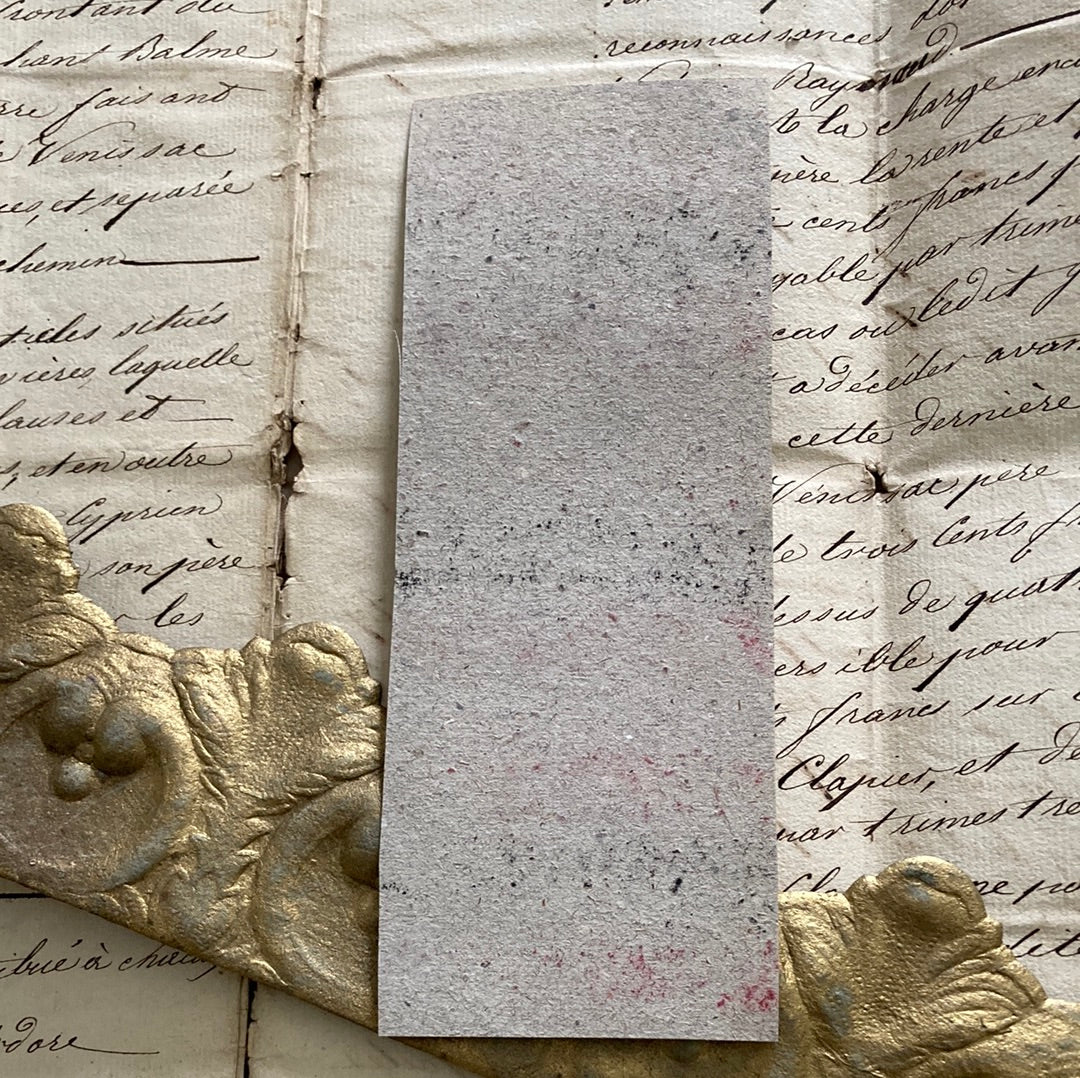 frontant du
chant Balme
rre faisant
Venissac
ues, et separée
chemin
rticles situés
vières laquelle
lauses et
s, et en outre
Cyprien
son père
r les
bué à
dore
reconnaissances
Raynaud
t la charge
nière la rente et
cents francs
gable par trime
cas ou ledit
a décéder avan
cette dernière
Vénissac père
de trois Cents
essus de quat
ersible pour
francs sur
Clapier, et de
par trimestre